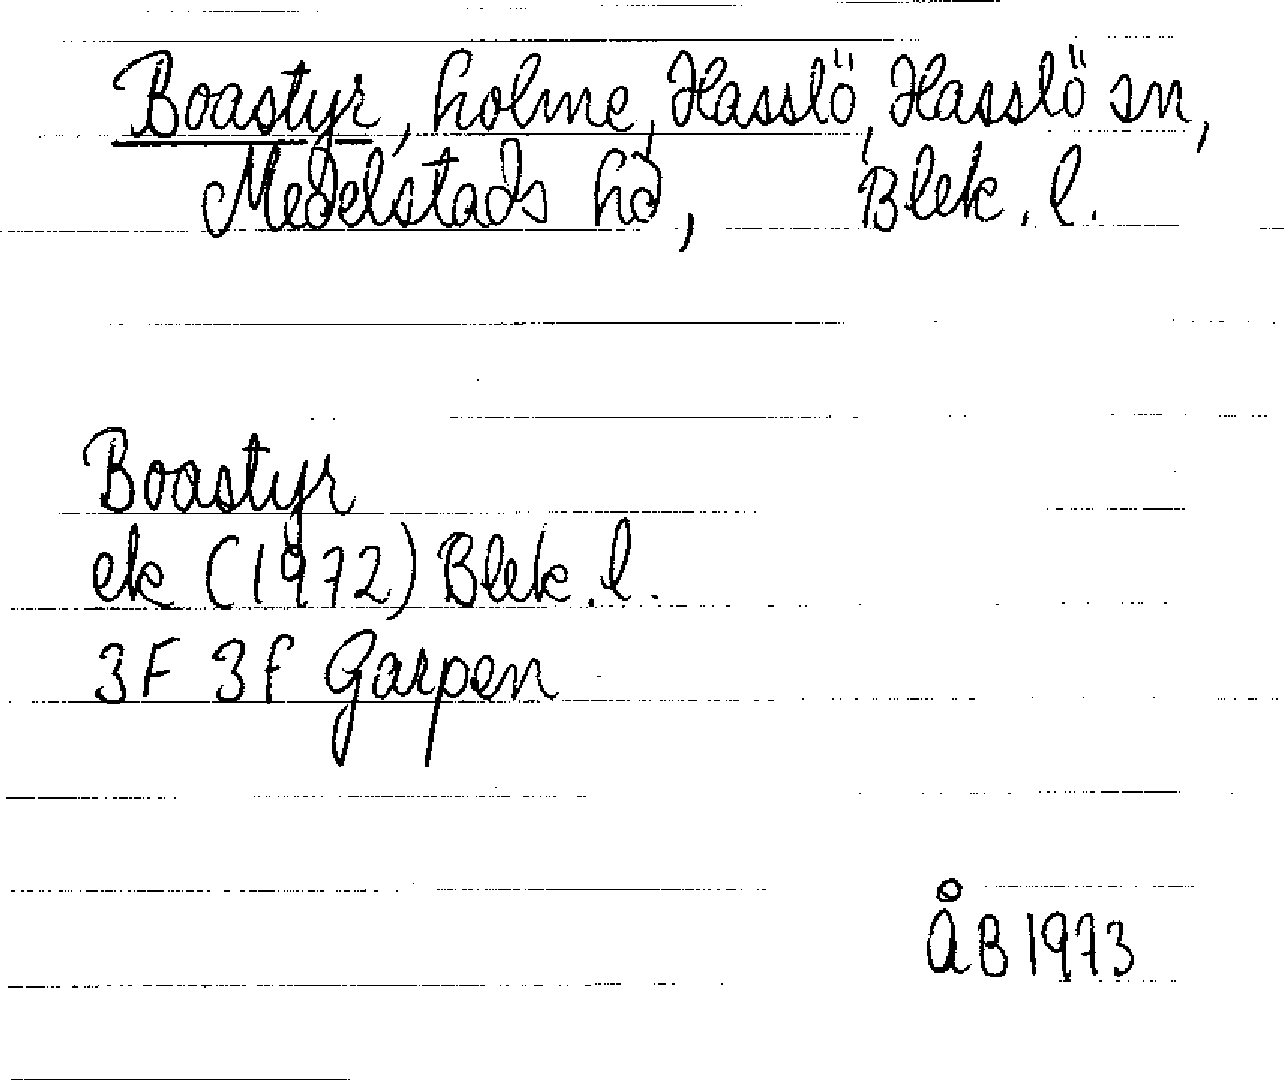 Boastyr, holme, Hasslö, Hasslö sn,
Medelstads hd, Blek. l.
Boastyr
ek (1972) Blek. l.
3F 3f Garpen
ÅB 1973